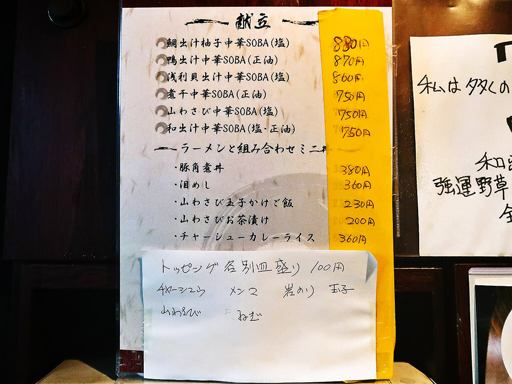 献立
鯛出汁柚子中華SOBA(塩) 880円
鴨出汁中華SOBA(正油) 870円
浅利貝出汁中華SOBA(塩) 860円
煮干中華SOBA(正油) 750円
山わさび中華SOBA(塩) 750円
和出汁中華SOBA(塩・正油) 750円
ラーメンと組み合わせミニ丼
・豚角煮丼 380円
・泪めし 360円
・山わさび玉子かけご飯 230円
・山わさびお茶漬け 200円
・チャーシューカレーライス 360円
トッピング各別皿盛り 100円
チャーシュウ メンマ 岩のり 玉子
山わさび ねぎ
私は多くの
和
強運野草